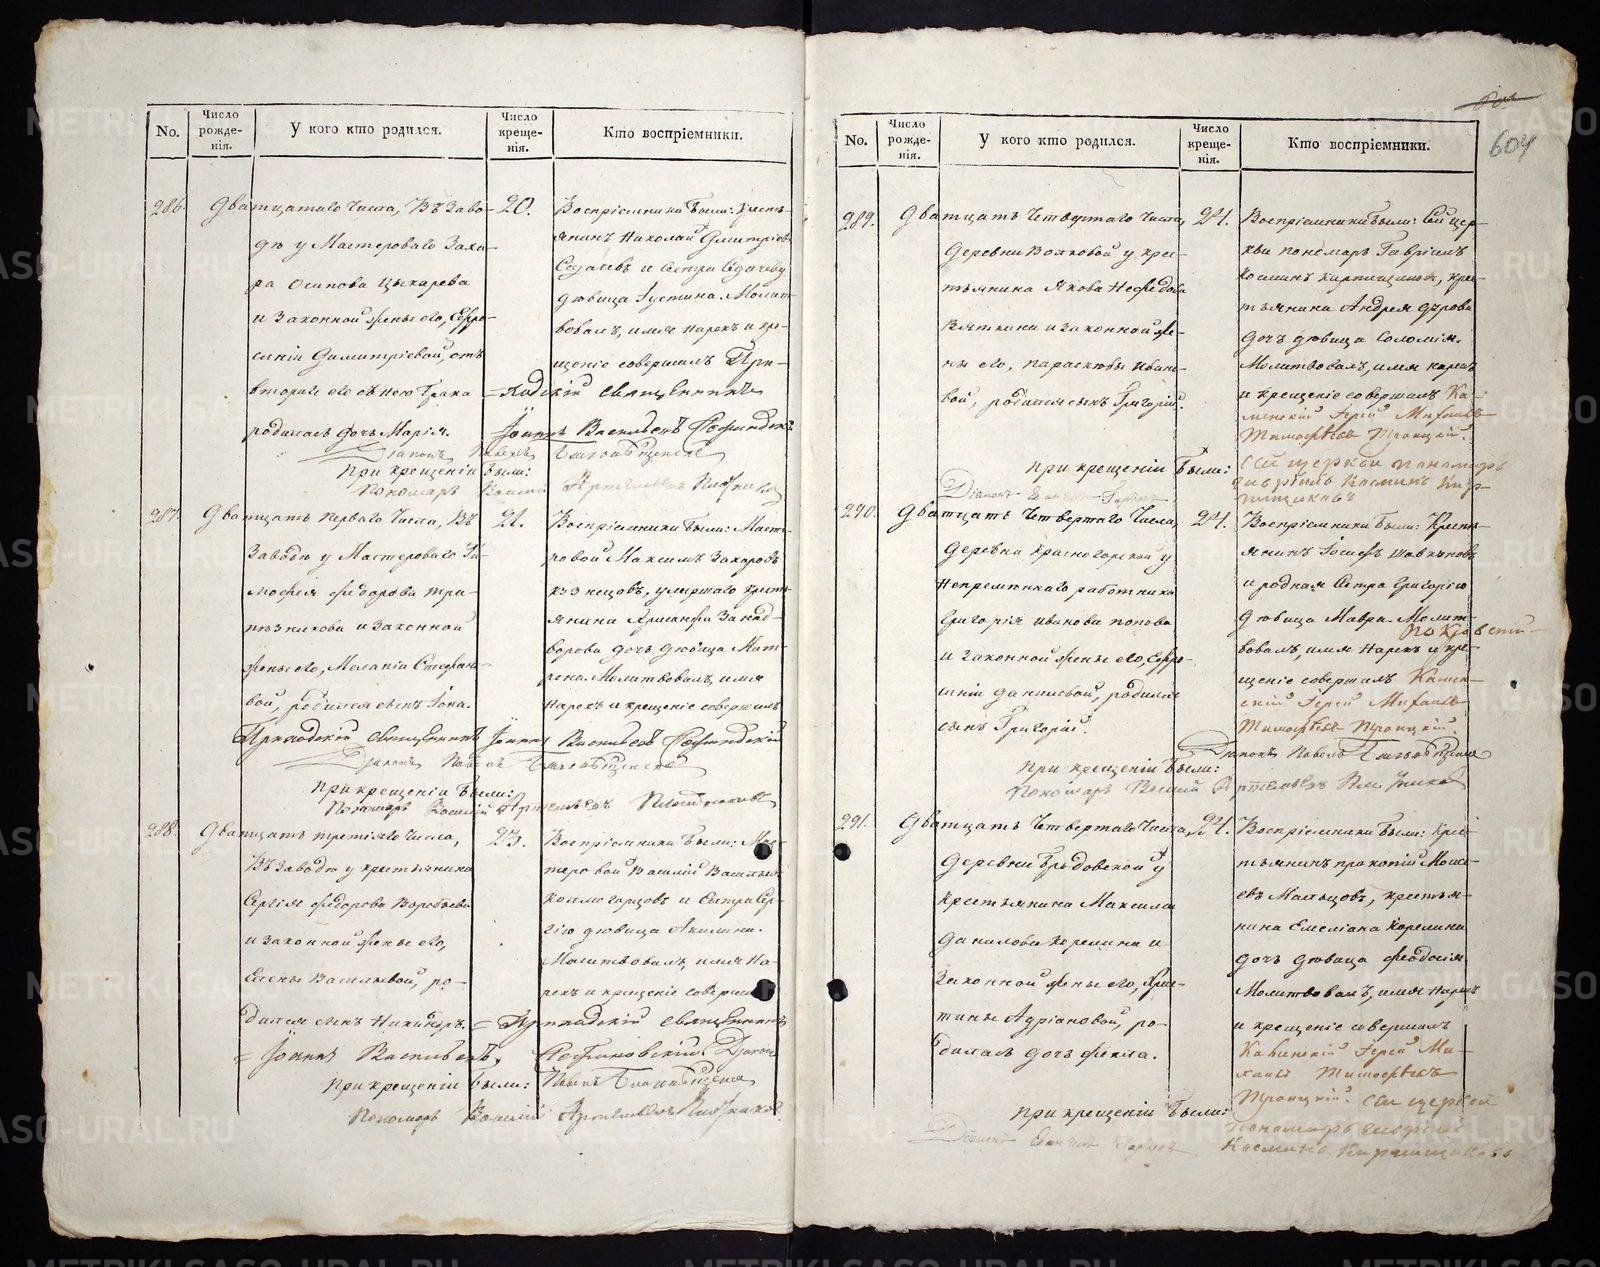 No.
Число рожде-
нія.
У кого кто родился.
Число креще-
нія.
Кто воспріемники.
286.
Дватцатаго числа, Въ Заво-
дѣ у Мастероваго Заха-
ра Осипова Цыкарева
и Законной жены его, Ефро-
синіи Димитріевой, отъ
втораго его съ нею брака
родилась дочь Марія.
20.
Воспріемники были: Кресть-
янинъ Николай Дмитріевъ
и сестра
дѣвица Іустина. Молит-
вовалъ, имя нарекъ и кре-
щеніе совершилъ При-
ходскій Священникъ
Іоаннъ Васильевъ
Діаконъ Павелъ
При крещеніи были:
Пономарь Василій Артемьевъ
287.
Дватцать перваго числа, Въ
Заводѣ у Мастероваго Ти-
мофея Федорова
и Законной
жены его, Меланіи Стефано-
вой, родился сынъ Іона.
21.
Воспріемники были: Масте-
ровой Максимъ Захаровъ
Кузнецовъ, умершаго кресть-
янина
дочь дѣвица Мат-
рена. Молитвовалъ, имя
нарекъ и крещеніе совершилъ
Приходскій Священникъ Іоаннъ Васильевъ
Діаконъ Павелъ
При крещеніи были:
Пономарь Василій Артемьевъ
288.
Дватцать третіяго числа,
Въ Заводѣ у крестьянина
Сергія Федорова Воробьева
и законной жены его,
Елены Васильевой, ро-
дился сынъ Никифоръ.
23.
Воспріемники были: Мас-
теровой Василій Васильевъ
Колмогорцовъ и сестра Сер-
гію дѣвица Акилина.
Молитвовалъ, имя на-
рекъ и крещеніе совершилъ
Приходскій Священникъ
Іоаннъ Васильевъ Діаконъ
При крещеніи были: Павелъ
Пономарь Василій Артемьевъ
604
No.
Число рожде-
нія.
У кого кто родился.
Число креще-
нія.
Кто воспріемники.
289.
Дватцать четвертаго числа,
деревни Волковой у крес-
тьянина Якова Нефедова
Вяткина и законной же-
ны его, Параскевы Ивано-
вой, родился сынъ Григорій.
24.
Воспріемники были: Сей цер-
кви пономарь Гавріилъ
Косминъ Кирпищиковъ, крес-
тьянина Андрея
дочь дѣвица Соломія.
Молитвовалъ, имя нарекъ
и крещеніе совершилъ Ка-
менскій Іерей Михаилъ
Тимофѣевъ Троицкій.
При крещеніи были: Сей церкви пономарь
Гавріилъ Косминъ Кир-
пищиковъ
Діаконъ
290.
Дватцать четвертаго числа,
Деревни Красногорской у
непремѣннаго работника
Григорія Иванова Попова
и законной жены его, Ефро-
синіи Даниловой, родился
сынъ Григорій.
24.
Воспріемники были: Кресть-
янинъ Іосифъ
и родная сестра Григорію
дѣвица Мавра. Молит-
вовалъ, имя нарекъ и кре-
щеніе совершилъ Камен-
скій Іерей Михаилъ
Тимофѣевъ Троицкій.
Діаконъ Павелъ
При крещеніи были:
Пономарь Василій Артемьевъ
291.
Дватцать четвертаго числа,
Деревни Бродовской у
крестьянина Максима
Данилова Корелина и
законной жены его, Хрис-
тины Адріановой, ро-
дилась дочь Фекла.
24.
Воспріемники были: Крес-
тьянинъ Прокопій Моисе-
евъ Мальцовъ, крестья-
нина Емеліана Корелина
дочь дѣвица Феодосія.
Молитвовалъ, имя нарекъ
и крещеніе совершилъ
Каменскій Іерей Ми-
хаилъ Тимофѣевъ
Троицкій. Сей церкви
При крещеніи были:
Пономарь Гавріилъ
Косминъ Кирпищиковъ
Діаконъ
METRIKI.GASO-URAL.RU